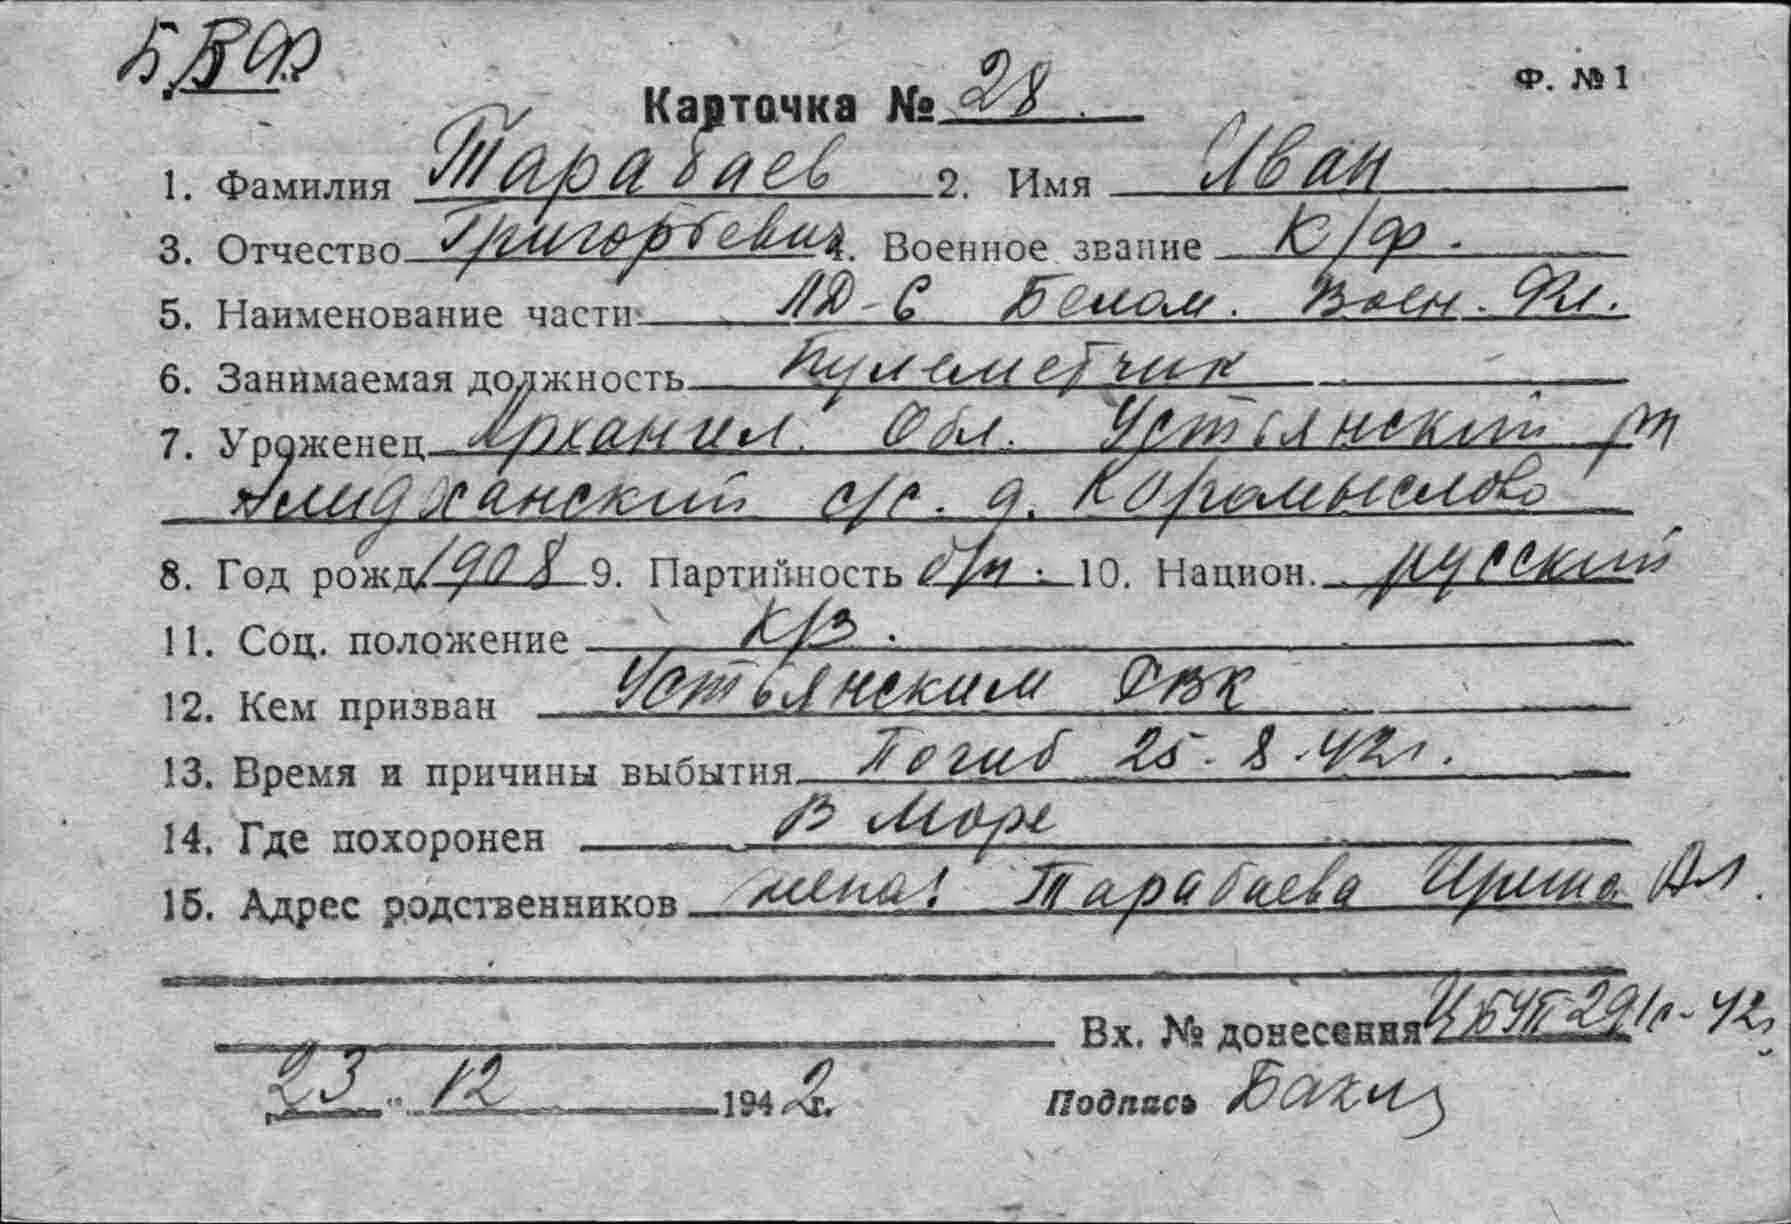 Б.В.Ф.
Ф. № 1
Карточка № 28.
1. Фамилия Тарабаев 2. Имя Иван
3. Отчество Григорьевич 4. Военное звание к/ф.
5. Наименование части ЛД-6 Белом. Воен. Фл.
6. Занимаемая должность Пулеметчик
7. Уроженец Архангел. Обл. Устьянский
с/с. д. Коромыслово
8. Год рожд. 1908 9. Партийность б/п. 10. Национ. русский
11. Соц. положение к/з.
12. Кем призван Устьянским РВК
13. Время и причины выбытия Погиб 25-8-42г.
14. Где похоронен В море
15. Адрес родственников жена: Тарабаева Ал.
Вх. № донесения ЦБУП 291с-42г.
23 " 12 1942г. Подпись